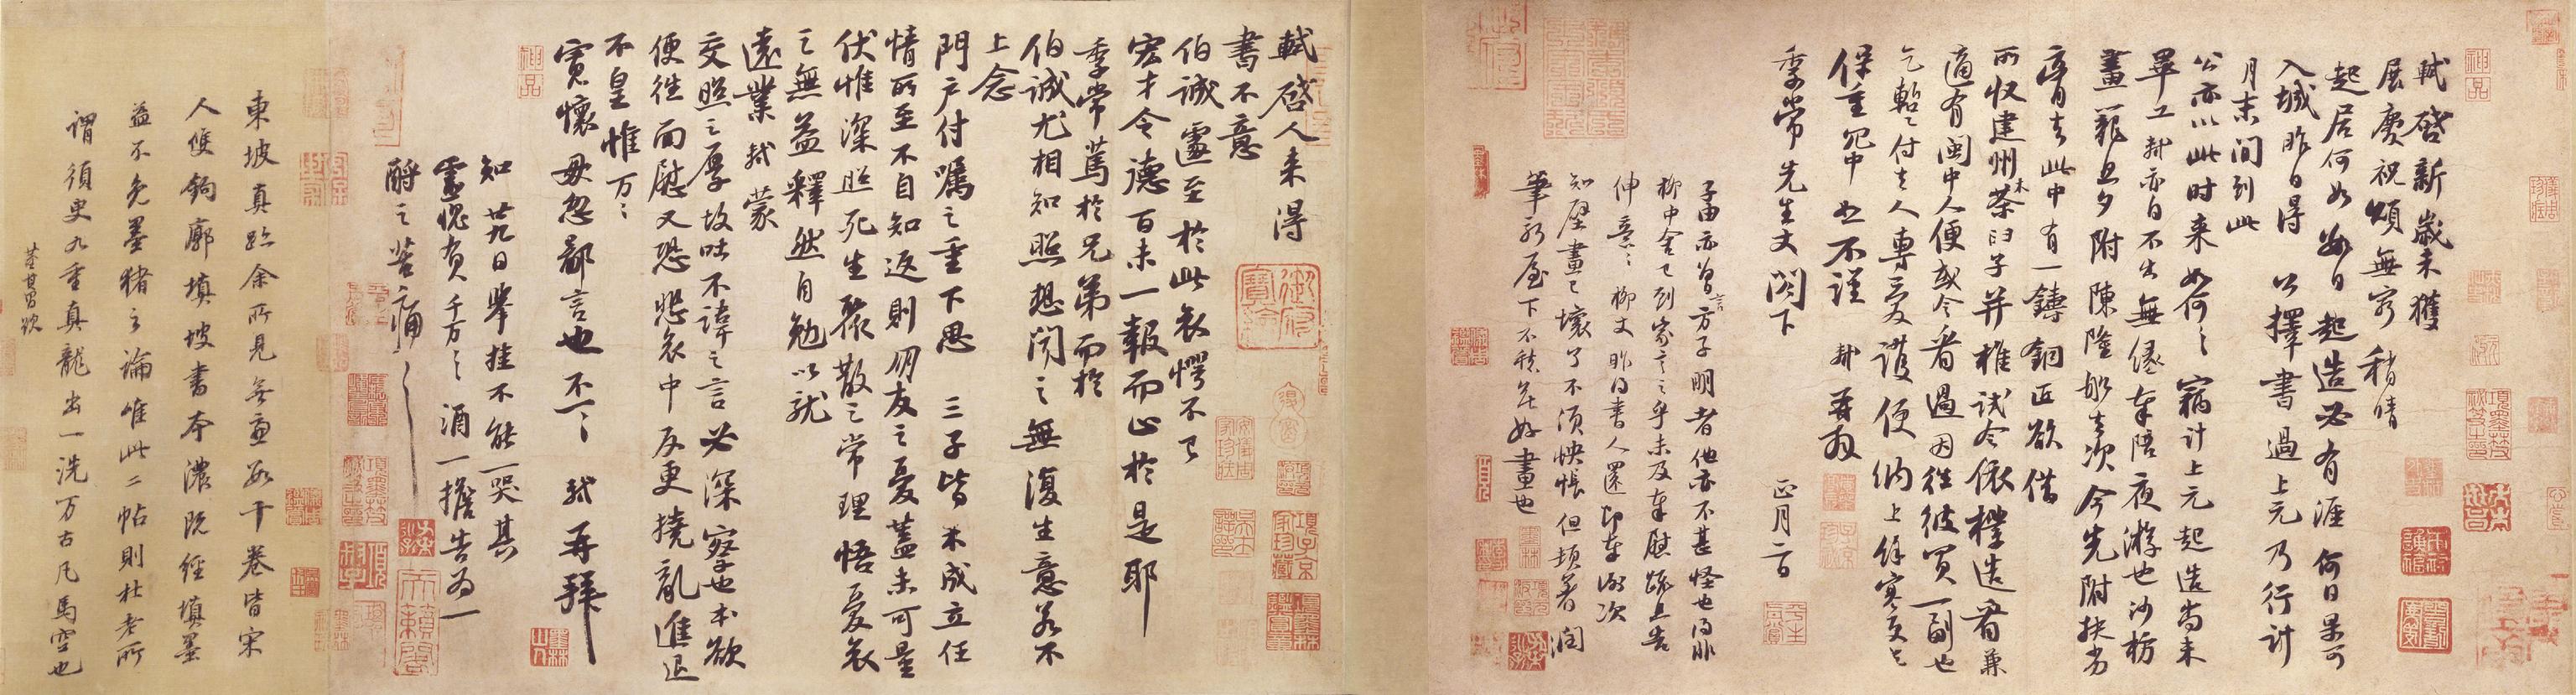 軾啓新歲未獲
展慶祝頌無窮稍晴
起居何如數日起造必有涯何日果可
入城昨日得公擇書過上元乃行計
月末間到此
公亦以此時來如何〻竊計上元起造尚未
畢工軾亦自不出無緣奉陪夜游也沙枋
畫籠旦夕附陳隆船去次今先附扶劣
膏去此中有一鑄銅匠欲借
所收建州木茶臼子并椎試令依樣造看兼
適有閩中人便或令看過因往彼買一副也
乞暫付去人專愛護便納上餘寒更乞
保重冗中恕不謹軾再拜
季常先生丈閤下 正月二日
子由亦曾言方子明者他亦不甚怪也得非
柳中舍已到家言之乎未及奉慰疏且告
伸意〻柳丈昨得書人還即奉謝次
知壁畫已壞了不須怏悵但頓著潤
筆新屋下不愁無好畫也
軾啓人來得
書不意
伯誠遽至於此哀愕不已
宏才令德百未一報而止於是耶
季常篤於兄弟而於
伯誠尤相知照想聞之無復生意若不
上念
門戶付囑之重下思三子皆未成立任
情所至不自知返則朋友之憂蓋未可量
伏惟深照死生聚散之常理悟憂哀
之無益釋然自勉以就
遠業軾蒙
交照之厚故吐不諱之言必深察也本欲
便往面慰又恐悲哀中反更撓亂進退
不皇惟萬〻
寬懷毋忽鄙言也不一〻軾再拜
知廿九日舉掛不能一哭其
靈愧負千万〻酒一擔告為一
酹之苦痛〻
東坡真跡余所見無慮數十卷皆宋
人雙鉤廓填坡書本濃既經填墨
益不免墨豬之論唯此二帖則杜老所
謂須臾九重真龍出一洗万古凡馬空也
董其昌跋